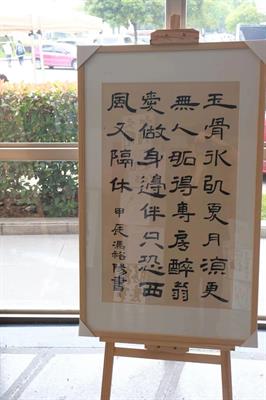 玉骨冰肌夏月凉更
無人妬得專房醉翁
愛做身邊伴只恐西
風又隔休
甲辰馮 陽書